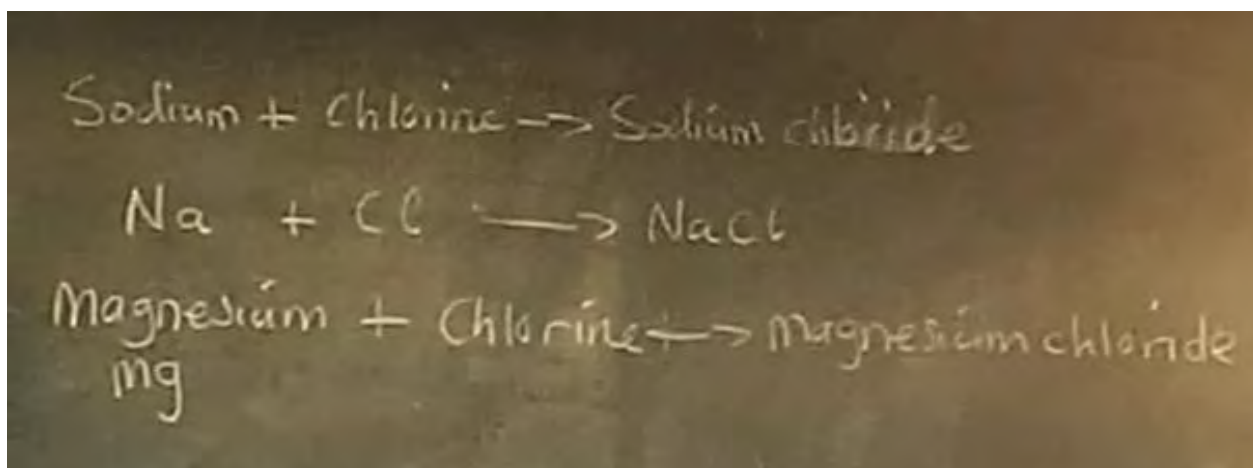 Sodium + Chlorine -> Sodium chloride
Na + Cl -> NaCl
Magnesium + Chlorine -> Magnesium chloride
mg